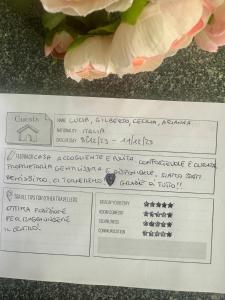 Guests
NAME: LUCIA, GILBERTO, CECILIA, ARIANNA
NATIONALITY: ITALIA
DATES OF STAY: 8/12/23 - 11/12/23
CASA ACCOGLIENTE E PULITA, CONFORTEVOLE E CURATA
PROPRIETARIA GENTILISSIMA E DISPONIBILE. SIAMO STATI
BENISSIMO, CI TORNEREMO GRAZIE DI TUTTO!!
TRAVEL TIPS FOR OTHER TRAVELLERS
OTTIMA POSIZIONE
PER RAGGIUNGERE
IL CENTRO!
RATE OF YOUR STAY ★★★★★
ROOM COMFORT ★★★★★
CLEANLINESS ★★★★★
COMMUNICATION ★★★★★